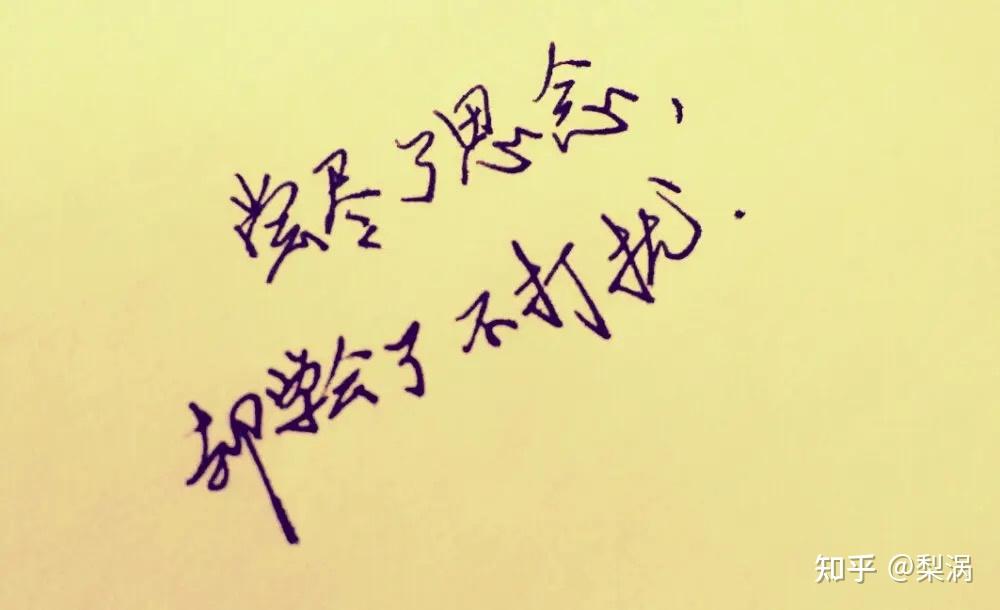 尝尽了思念,
却学会了不打扰.
知乎 @梨涡